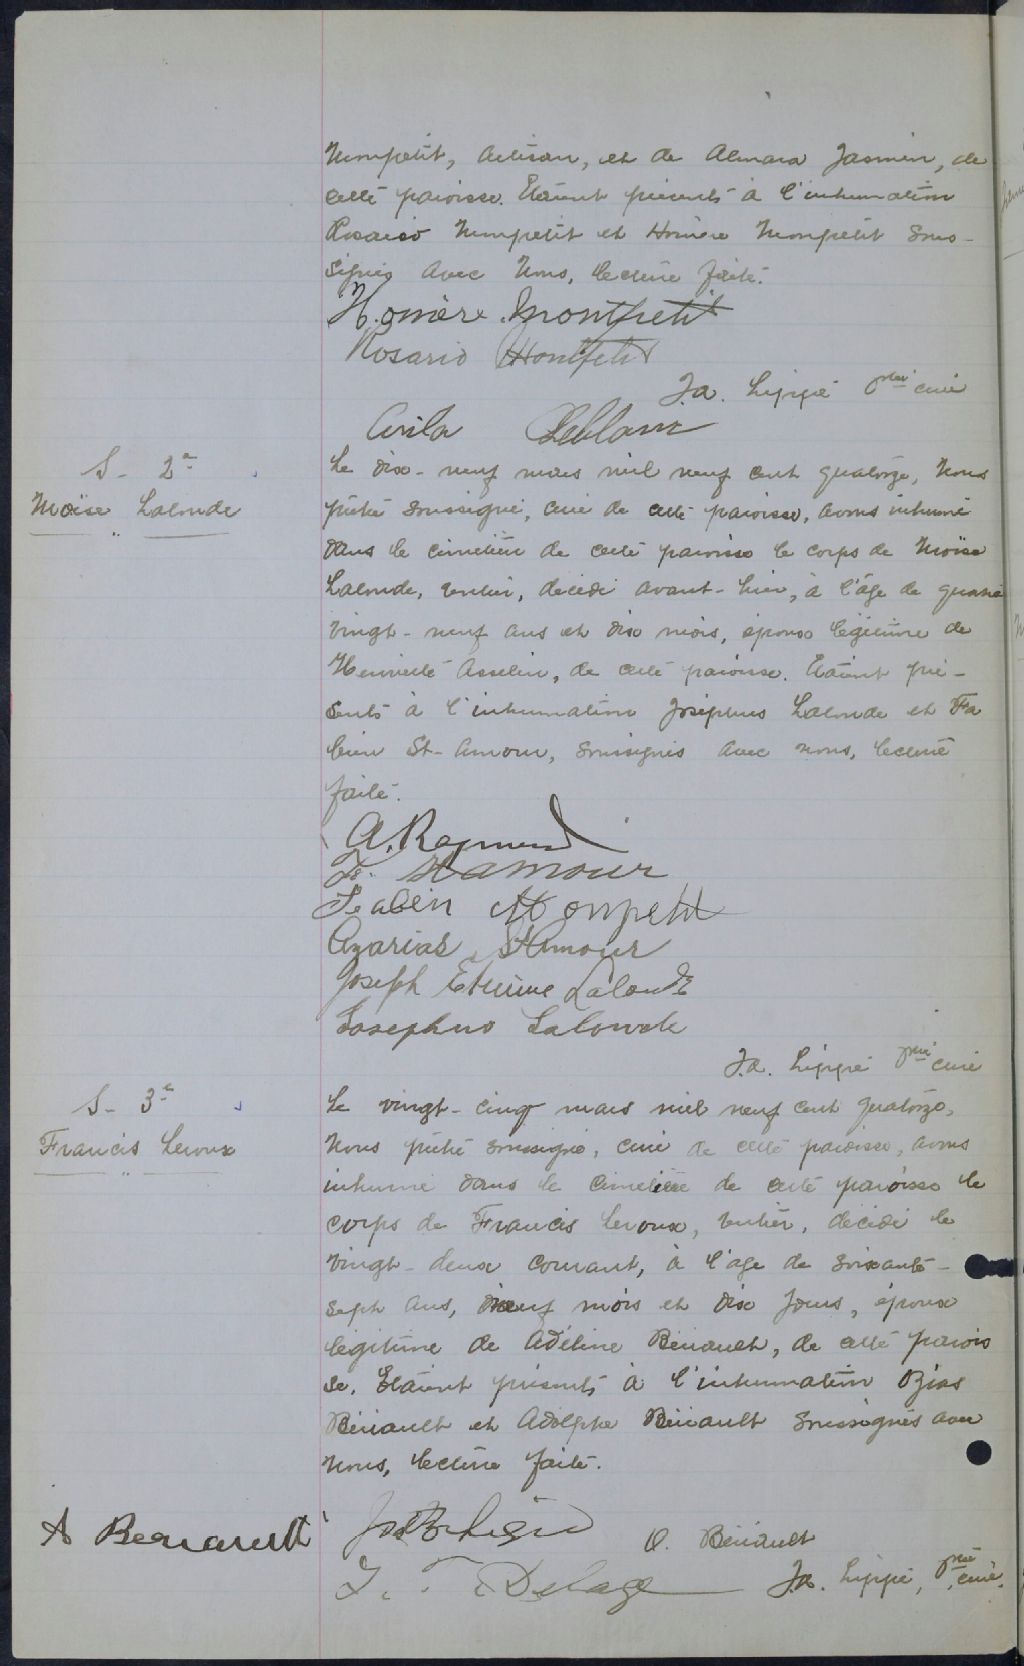 Monpetit, Artisan, et de Almara Jasmin, de
cette paroisse. Etaient présents à l'inhumation
Rosario Monpetit et Homère Monpetit sous-
signés avec Nous, lecture faite.
Homère Montpetit
Rosario Montpetit
J.A. Lippé ptre curé
Avila Leblanc
S- 2e
Moïse Lalonde
Le dix-neuf mars mil neuf cent quatorze, Nous
prêtre soussigné, curé de cette paroisse, avons inhumé
dans le cimetière de cette paroisse le corps de Moïse
Lalonde, rentier, décédé avant-hier, à l'âge de quatre
vingt-neuf ans et dix mois, époux légitime de
Henriette Asselin, de cette paroisse. Etaient pré-
sents à l'inhumation Josephus Lalonde et Fa
bien St-Amour, soussignés avec nous, lecture
faite.
A. Raymond
F. StAmour
Fabien Monpetit
Azarias StAmour
Joseph Etienne Lalonde
Josephus Lalonde
J.A. Lippé ptre curé
S- 3e
Francis Leroux
Le vingt-cinq mars mil neuf cent quatorze,
Nous prêtre soussigné, curé de cette paroisse, avons
inhumé dans le cimetière de cette paroisse le
corps de Francis Leroux, rentier, décédé le
vingt-deux courant, à l'age de soixante-
sept ans, neuf mois et dix jours, époux
légitime de Adéline Bériault, de cette parois
se. Etaient présents à l'inhumation Ozias
Bériault et Adolphe Bériault soussignés avec
Nous, lecture faite.
A Beriault
O. Bériault
Delage
J.A. Lippé, ptre curé.